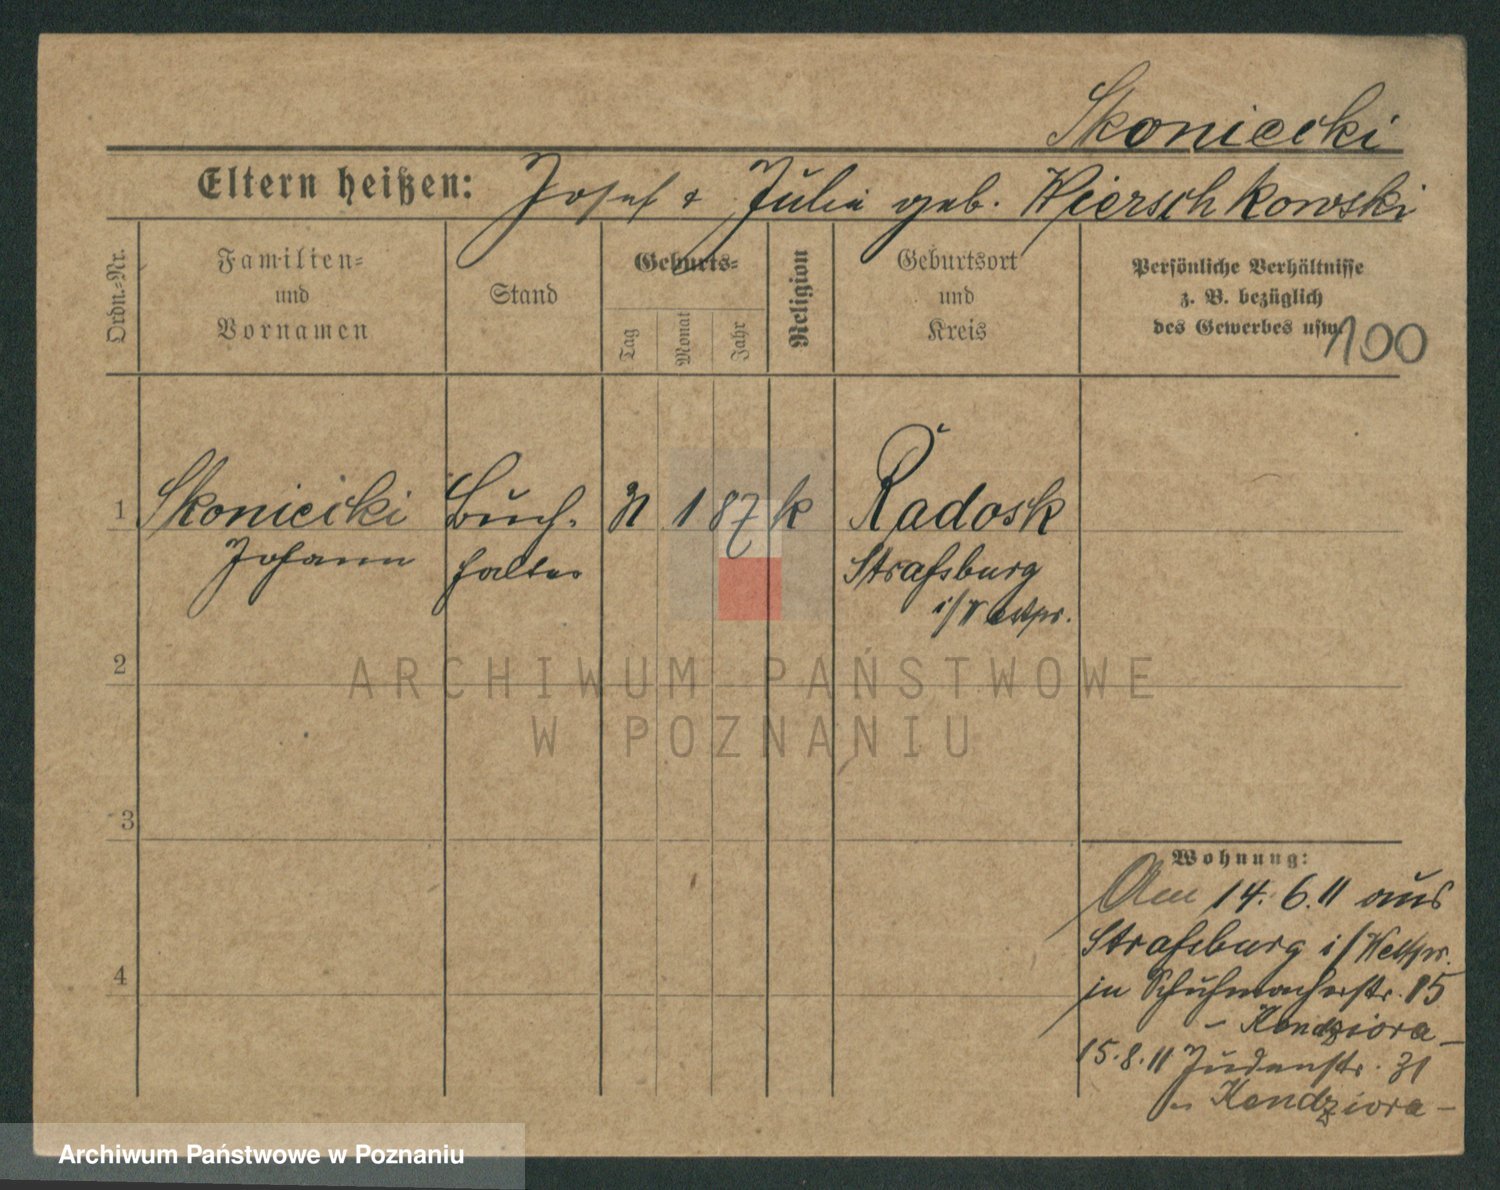 Skoniecki
Eltern heißen: Josef & Julie geb. Wierschkowski
Ordn.-Nr.
Familien-
und
Vornamen
Stand
Geburts-
Tag
Monat
Jahr
Religion
Geburtsort
und
Kreis
Persönliche Verhältnisse
z. B. bezüglich
des Gewerbes usw.
100
1 Skoniecki Buch- 1 87 k Radosk
Johann halter Strasburg
i/Westpr.
2
3
4
Wohnung:
Am 14.6.11 aus
Strasburg i/Westpr.
in Schuhmacherstr. 15
– Kendziora –
15.8.11 Judenstr. 31
Kendziora –
ARCHIWUM PAŃSTWOWE
W POZNANIU
Archiwum Państwowe w Poznaniu